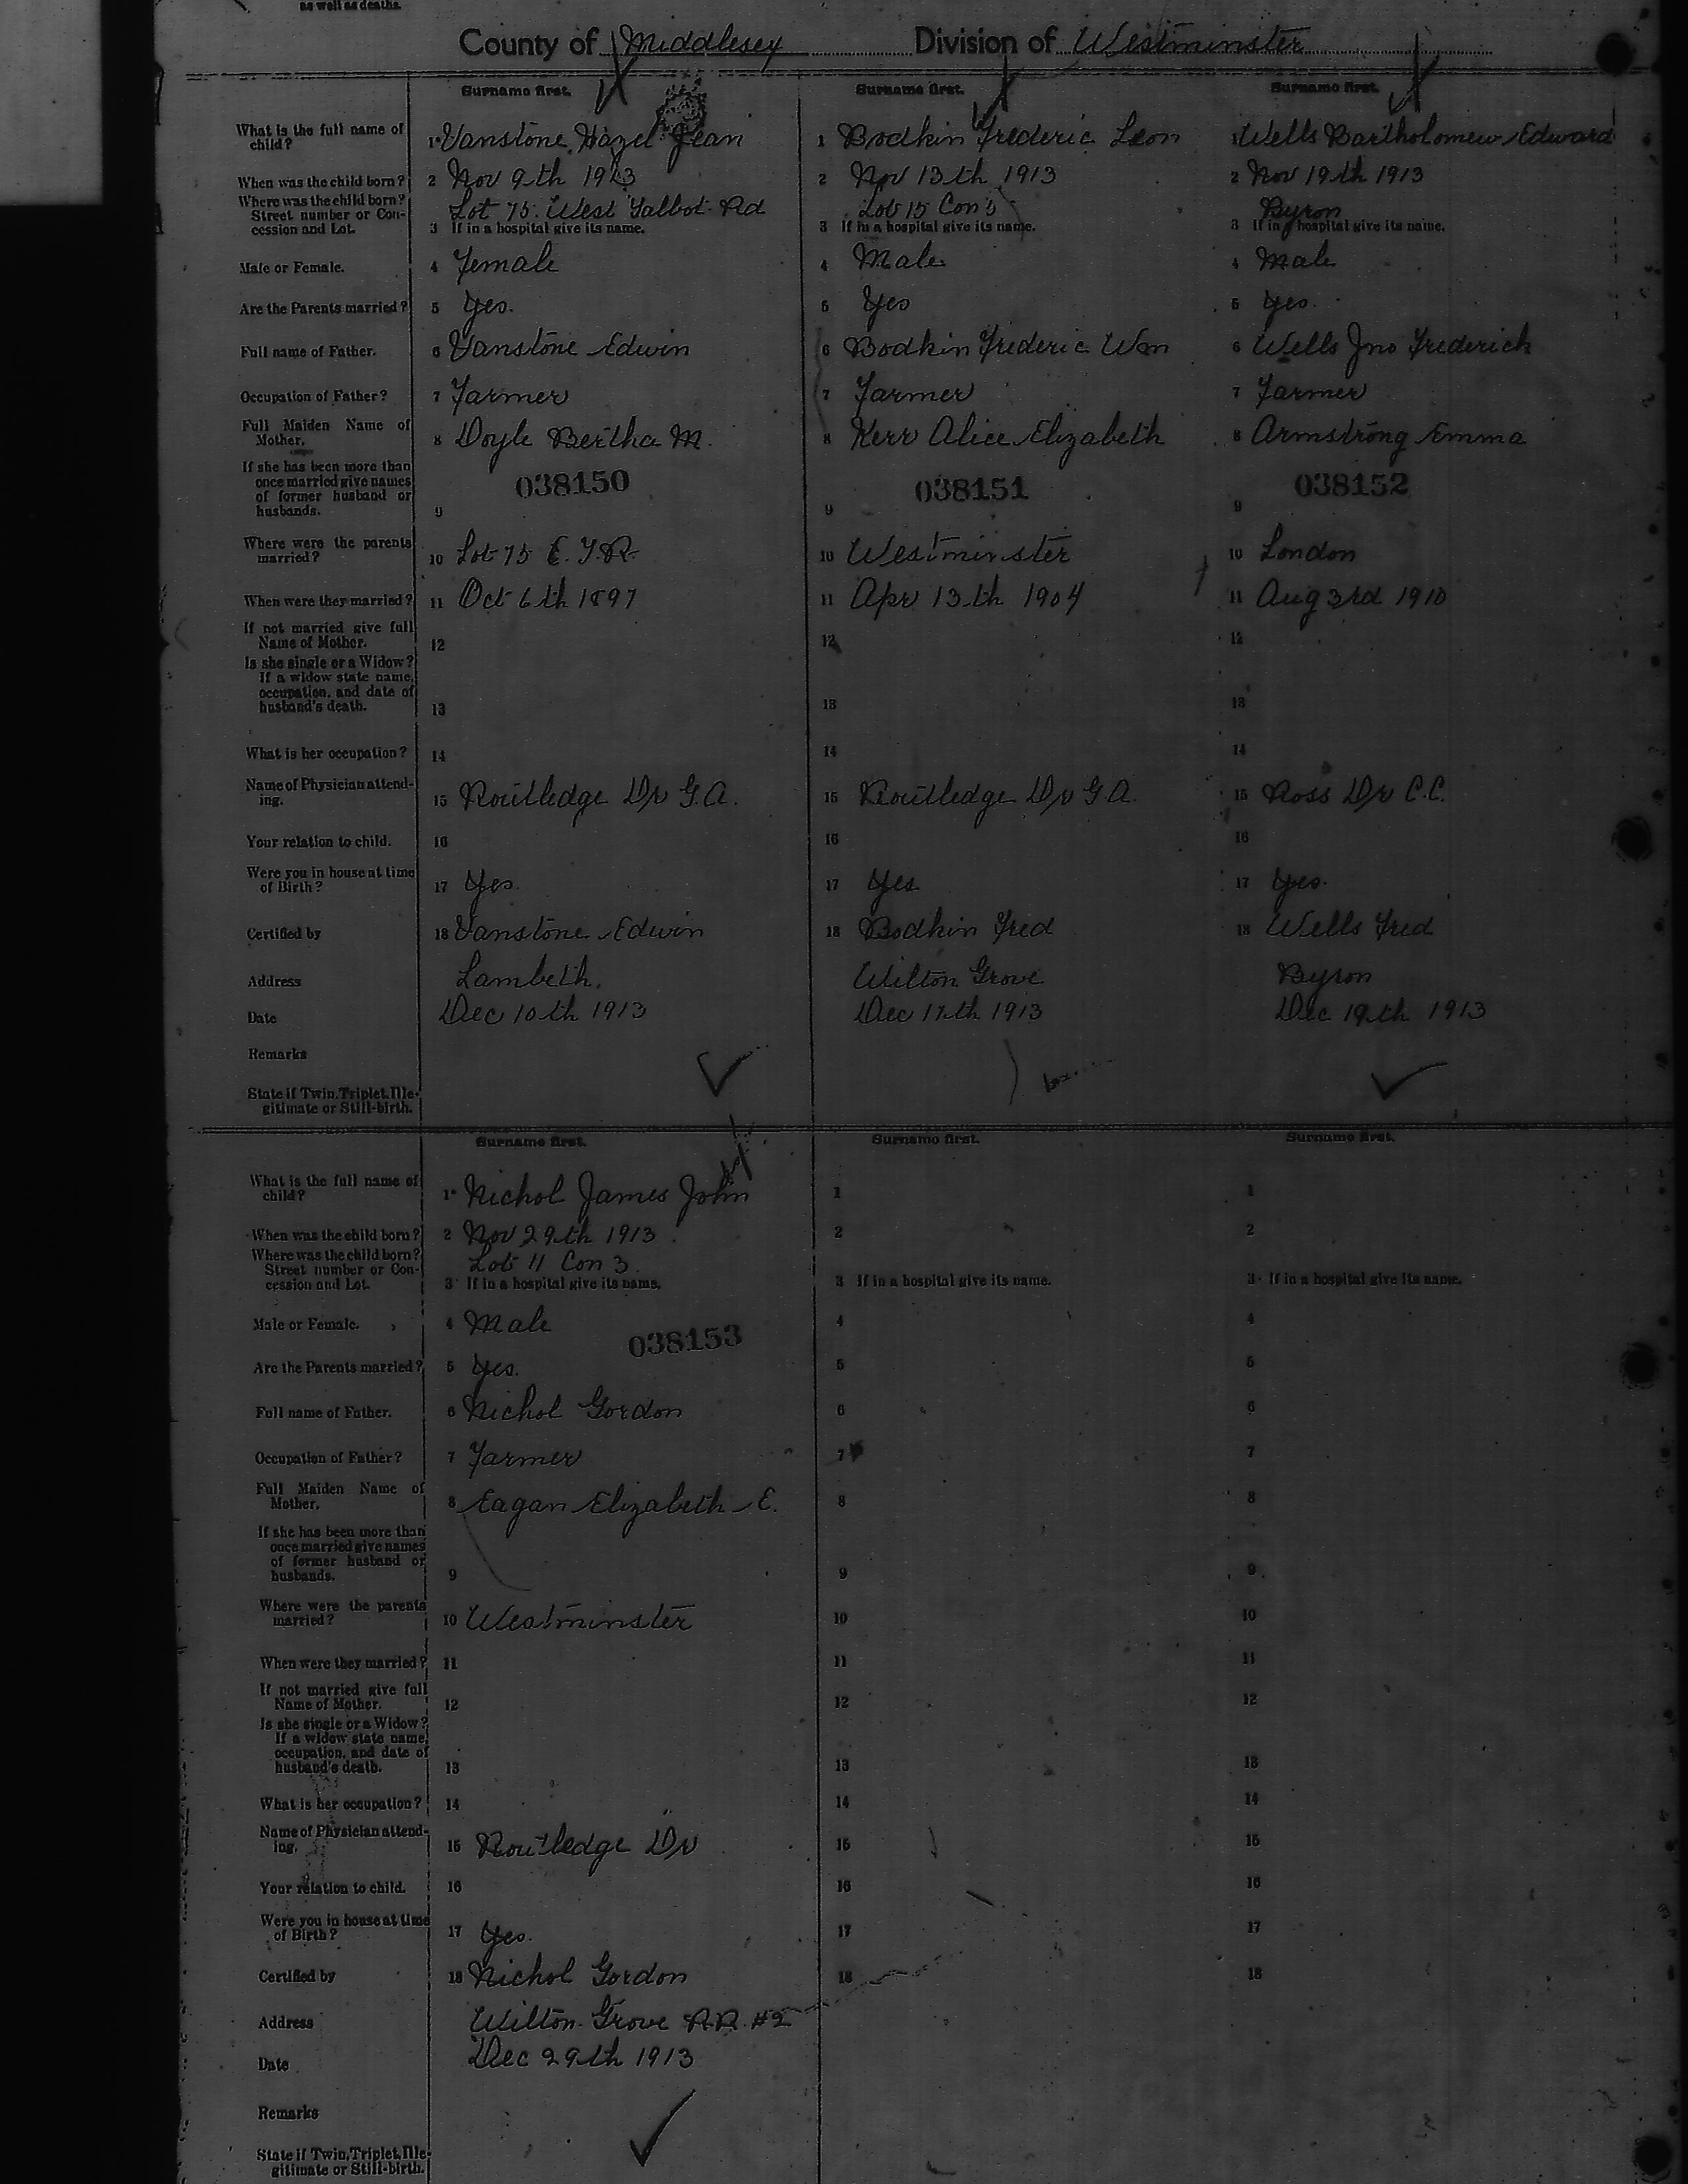 as well as deaths.
County of Middlesex Division of Westminster
Surname first. Surname first. Surname first.
What is the full name of child? 1 Vanstone Hazel Jean 1 Bodkin Frederic Leon 1 Wells Bartholomew Edward
When was the child born? 2 Nov 9th 1913 2 Nov 13th 1913 2 Nov 19th 1913
Where was the child born? Street number or Concession and Lot. Lot 75 West Talbot Rd Lot 15 Con 5 Byron
3 If in a hospital give its name. 3 If in a hospital give its name. 3 If in a hospital give its name.
Male or Female. 4 Female 4 Male 4 Male
Are the Parents married? 5 Yes. 5 Yes 5 Yes.
Full name of Father. 6 Vanstone Edwin 6 Bodkin Frederic Wm 6 Wells Jno Frederick
Occupation of Father? 7 Farmer 7 Farmer 7 Farmer
Full Maiden Name of Mother. 8 Doyle Bertha M. 8 Kerr Alice Elizabeth 8 Armstrong Emma
038150 038151 038152
If she has been more than once married give names of former husband or husbands. 9 9 9
Where were the parents married? 10 Lot 75 E. T. R. 10 Westminster 10 London
When were they married? 11 Oct 6th 1897 11 Apr 13th 1904 11 Aug 3rd 1910
If not married give full Name of Mother. 12 12 12
Is she single or a Widow? If a widow state name, occupation, and date of husband's death. 13 13 13
What is her occupation? 14 14 14
Name of Physician attending. 15 Routledge Dr G.A. 15 Routledge Dr G A. 15 Ross Dr C.C.
Your relation to child. 16 16 16
Were you in house at time of Birth? 17 Yes. 17 Yes 17 Yes.
Certified by 18 Vanstone Edwin 18 Bodkin Fred 18 Wells Fred
Address Lambeth. Wilton Grove Byron
Date Dec 10th 1913 Dec 17th 1913 Dec 19th 1913
Remarks
State if Twin, Triplet, Illegitimate or Still-birth.
Surname first. Surname first. Surname first.
What is the full name of child? 1 Nichol James John 1 1
When was the child born? 2 Nov 29th 1913 2 2
Where was the child born? Street number or Concession and Lot. Lot 11 Con 3
3 If in a hospital give its name. 3 If in a hospital give its name. 3 If in a hospital give its name.
Male or Female. 4 Male 4 4
038153
Are the Parents married? 5 Yes. 5 5
Full name of Father. 6 Nichol Gordon 6 6
Occupation of Father? 7 Farmer 7 7
Full Maiden Name of Mother. 8 Eagan Elizabeth E. 8 8
If she has been more than once married give names of former husband or husbands. 9 9 9
Where were the parents married? 10 Westminster 10 10
When were they married? 11 11 11
If not married give full Name of Mother. 12 12 12
Is she single or a Widow? If a widow state name, occupation, and date of husband's death. 13 13 13
What is her occupation? 14 14 14
Name of Physician attending. 15 Routledge Dr 15 15
Your relation to child. 16 16 16
Were you in house at time of Birth? 17 Yes. 17 17
Certified by 18 Nichol Gordon 18 18
Address Wilton Grove R.R. #2
Date Dec 29th 1913
Remarks
State if Twin, Triplet, Illegitimate or Still-birth.